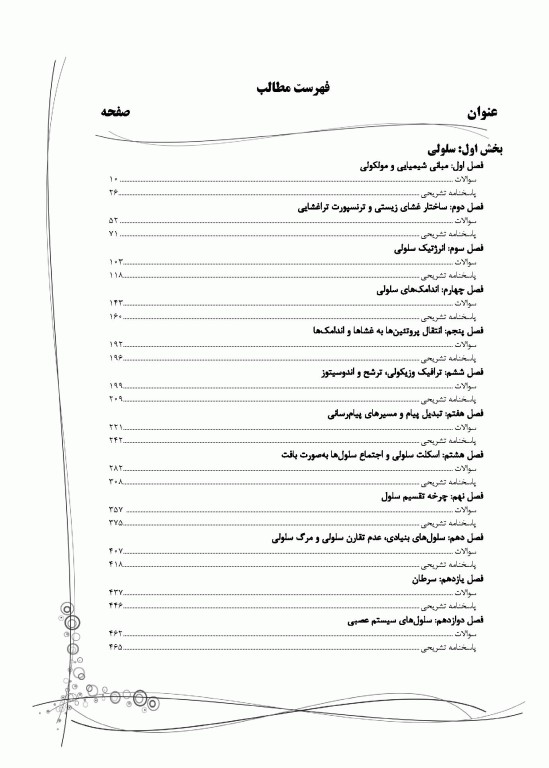 فهرست مطالب
عنوان صفحه
بخش اول: سلولی
فصل اول: مبانی شیمیایی و مولکولی
سوالات ۱۰
پاسخنامه تشریحی ۲۶
فصل دوم: ساختار غشای زیستی و ترنسپورت تراغشایی
سوالات ۵۲
پاسخنامه تشریحی ۷۱
فصل سوم: انرژتیک سلولی
سوالات ۱۰۳
پاسخنامه تشریحی ۱۱۸
فصل چهارم: اندامک‌های سلولی
سوالات ۱۴۳
پاسخنامه تشریحی ۱۶۰
فصل پنجم: انتقال پروتئین‌ها به غشاها و اندامک‌ها
سوالات ۱۹۲
پاسخنامه تشریحی ۱۹۶
فصل ششم: ترافیک وزیکولی، ترشح و اندوسیتوز
سوالات ۱۹۹
پاسخنامه تشریحی ۲۰۹
فصل هفتم: تبدیل پیام و مسیرهای پیام‌رسانی
سوالات ۲۲۱
پاسخنامه تشریحی ۲۴۲
فصل هشتم: اسکلت سلولی و اجتماع سلول‌ها به‌صورت بافت
سوالات ۲۸۲
پاسخنامه تشریحی ۳۰۸
فصل نهم: چرخه تقسیم سلول
سوالات ۳۵۷
پاسخنامه تشریحی ۳۷۵
فصل دهم: سلول‌های بنیادی، عدم تقارن سلولی و مرگ سلولی
سوالات ۴۰۷
پاسخنامه تشریحی ۴۱۸
فصل یازدهم: سرطان
سوالات ۴۳۷
پاسخنامه تشریحی ۴۴۶
فصل دوازدهم: سلول‌های سیستم عصبی
سوالات ۴۶۲
پاسخنامه تشریحی ۴۶۵